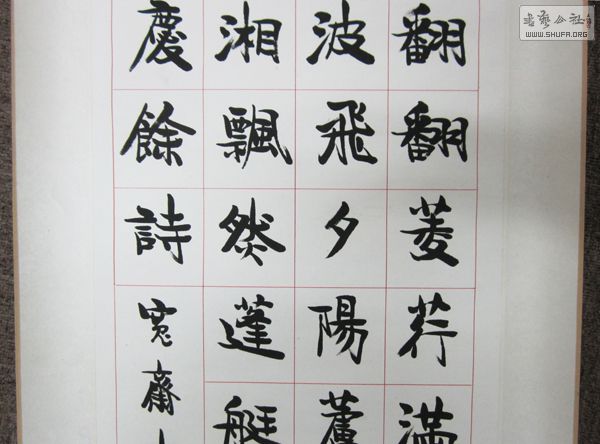 翻翻菱荇滿
波飛夕陽蘆
湘飄然蓬艇
慶餘詩寬齋
書藝公社
WWW.SHUFA.ORG